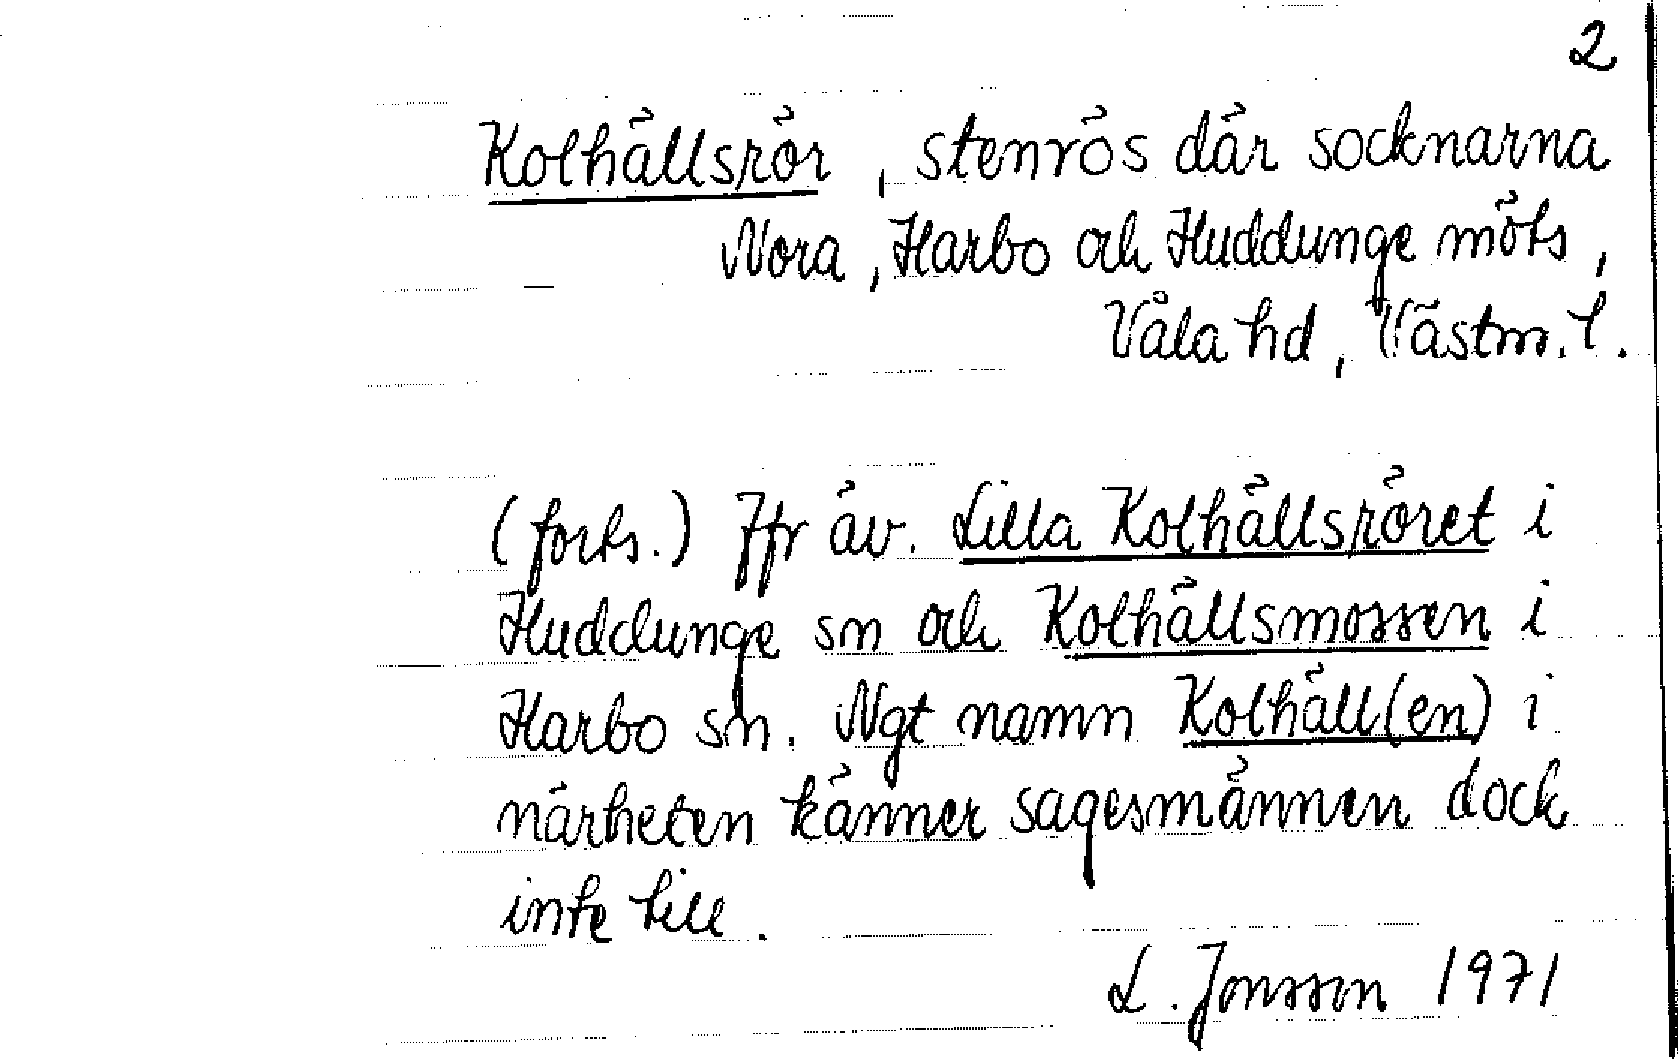 2
Kolhällsrör, stenrös där socknarna
Nora, Harbo och Huddunge möts,
Våla hd, Västm. l.
(forts.) Jfr äv. Lilla Kolhällsröret i
Huddunge sn och Kolhällsmossen i
Harbo sn. Ngt namn Kolhäll(en) i
närheten känner sagesmännen dock
inte till.
L. Jonsson 1971